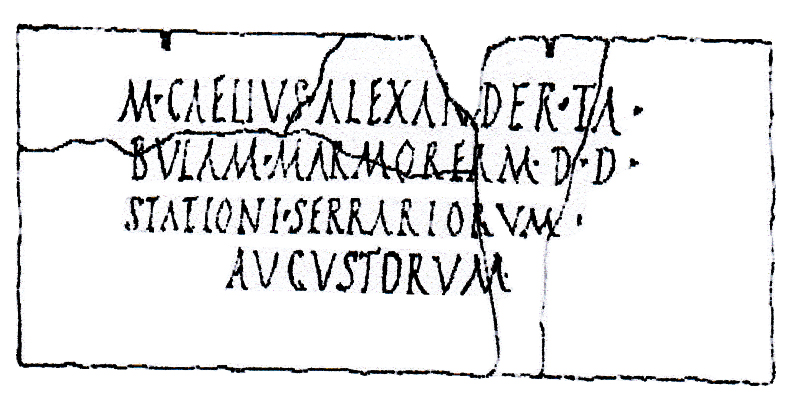 M·CAELIVS·ALEXANDER·TA·
BVLAM·MARMOREAM·D·D·
STATIONI·SERRARIORVM·
AVGVSTORVM·